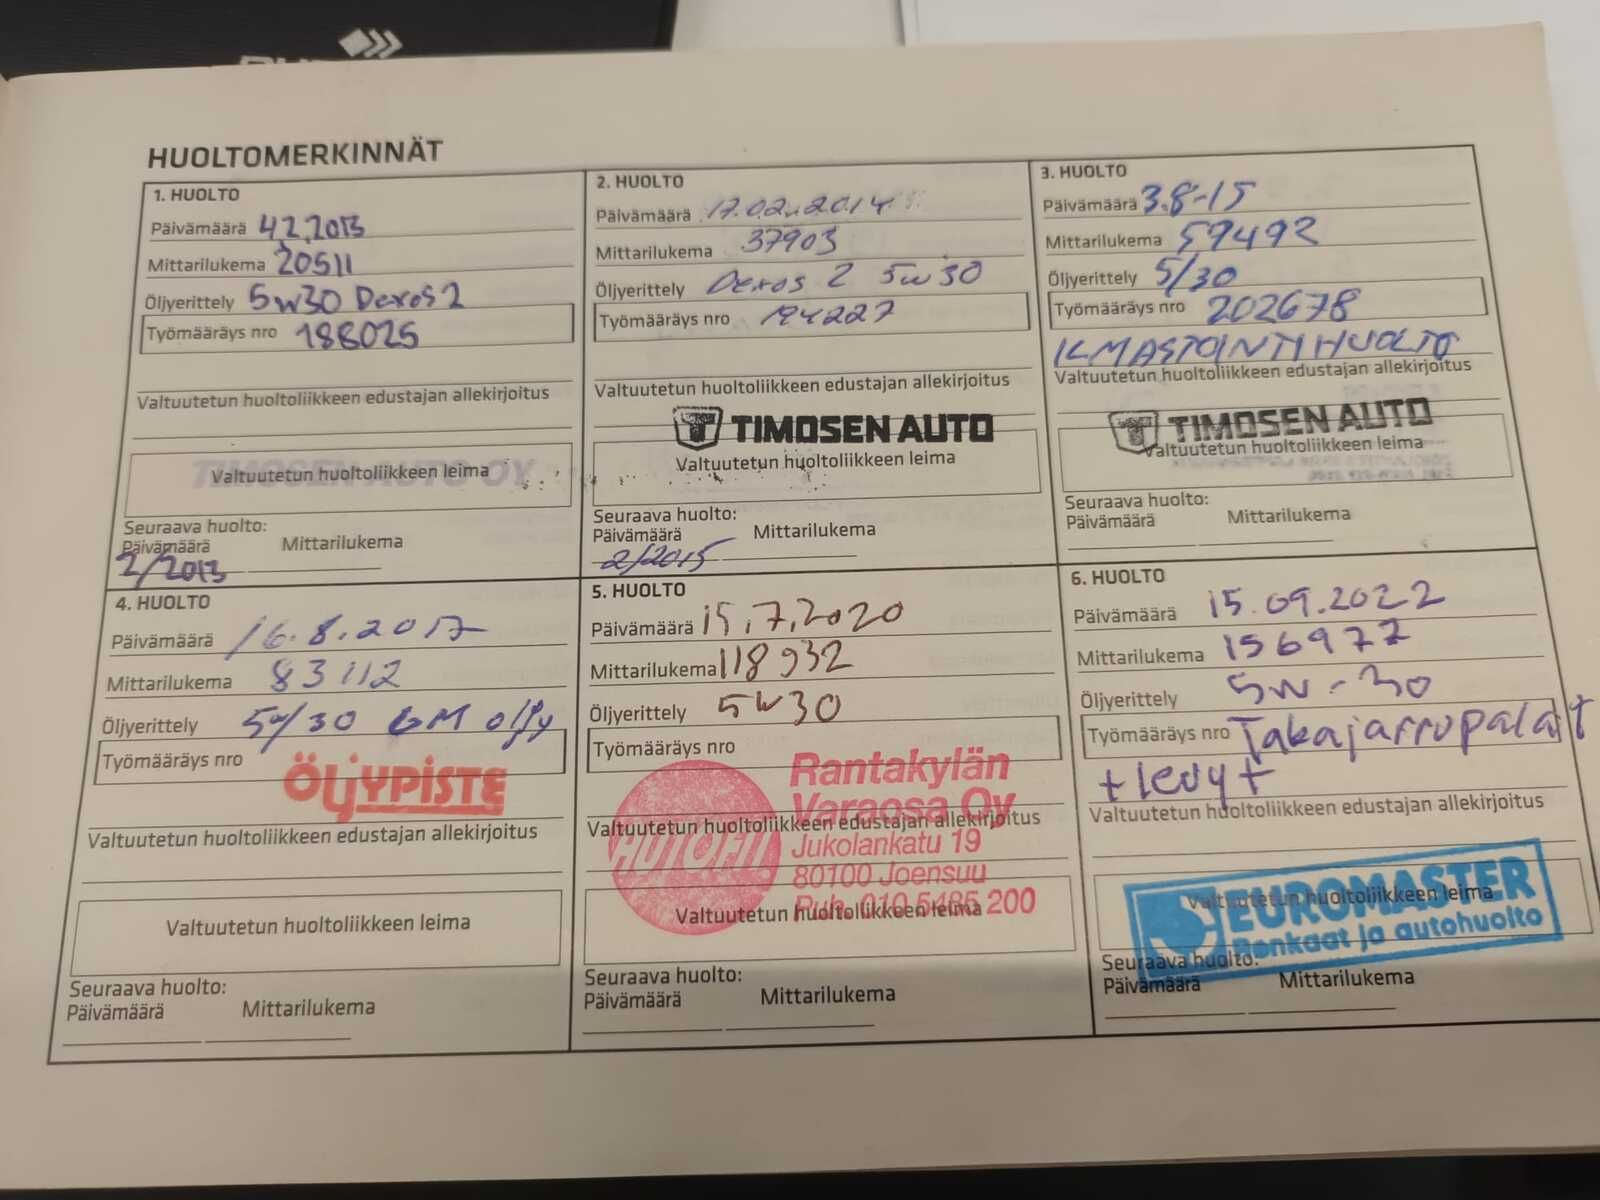 HUOLTOMERKINNÄT
1. HUOLTO
Päivämäärä 4.2.2013
Mittarilukema 20511
Öljyerittely 5w30 Dexos2
Työmääräys nro 188025
Valtuutetun huoltoliikkeen edustajan allekirjoitus
TIMOSEN AUTO OY
Valtuutetun huoltoliikkeen leima
Seuraava huolto:
Päivämäärä Mittarilukema
2/2013
2. HUOLTO
Päivämäärä 17.02.2014
Mittarilukema 37903
Öljyerittely Dexos 2 5w30
Työmääräys nro 194227
Valtuutetun huoltoliikkeen edustajan allekirjoitus
TIMOSEN AUTO
Valtuutetun huoltoliikkeen leima
Seuraava huolto:
Päivämäärä Mittarilukema
2/2015
3. HUOLTO
Päivämäärä 3.8-15
Mittarilukema 59492
Öljyerittely 5/30
Työmääräys nro 202678
ILMASTOINTIHUOLTO
Valtuutetun huoltoliikkeen edustajan allekirjoitus
TIMOSEN AUTO
Valtuutetun huoltoliikkeen leima
Seuraava huolto:
Päivämäärä Mittarilukema
4. HUOLTO
Päivämäärä 16.8.2017
Mittarilukema 83112
Öljyerittely 5w/30 GM öljy
Työmääräys nro
ÖLJYPISTE
Valtuutetun huoltoliikkeen edustajan allekirjoitus
Valtuutetun huoltoliikkeen leima
Seuraava huolto:
Päivämäärä Mittarilukema
5. HUOLTO
Päivämäärä 15.7.2020
Mittarilukema 118932
Öljyerittely 5w30
Työmääräys nro
Rantakylän
Varaosa Oy
Valtuutetun huoltoliikkeen edustajan allekirjoitus
AUTOFIT
Jukolankatu 19
80100 Joensuu
Puh. 010 5485 200
Valtuutetun huoltoliikkeen leima
Seuraava huolto:
Päivämäärä Mittarilukema
6. HUOLTO
Päivämäärä 15.09.2022
Mittarilukema 156977
Öljyerittely 5W-30
Työmääräys nro Takajarrupalat
+ levyt
Valtuutetun huoltoliikkeen edustajan allekirjoitus
EUROMASTER
Valtuutetun huoltoliikkeen leima
Renkaat ja autohuolto
Seuraava huolto:
Päivämäärä Mittarilukema